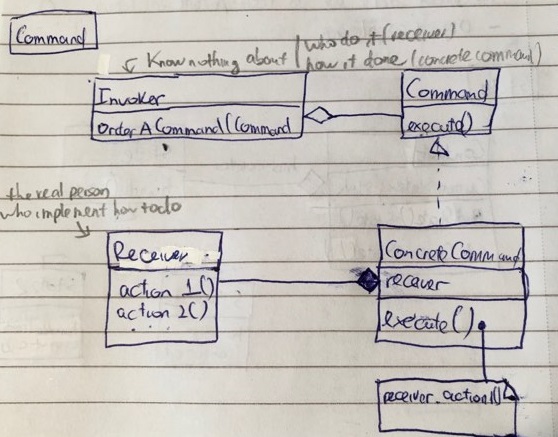 Command
Know nothing about
who do it (receiver)
how it done (concrete command)
Invoker
Order A Command (Command
Command
execute()
the real person
who implement how to do
Receiver
action 1()
action 2()
Concrete Command
receiver
execute()
receiver.action1()